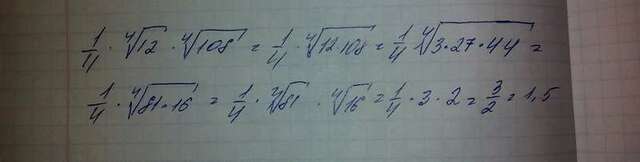 1/4 · ⁴√12 · ⁴√108 = 1/4 · ⁴√12·108 = 1/4 ⁴√3·27·4·4 =
1/4 · ⁴√81·16 = 1/4 · ⁴√81 · ⁴√16 = 1/4 · 3 · 2 = 3/2 = 1,5